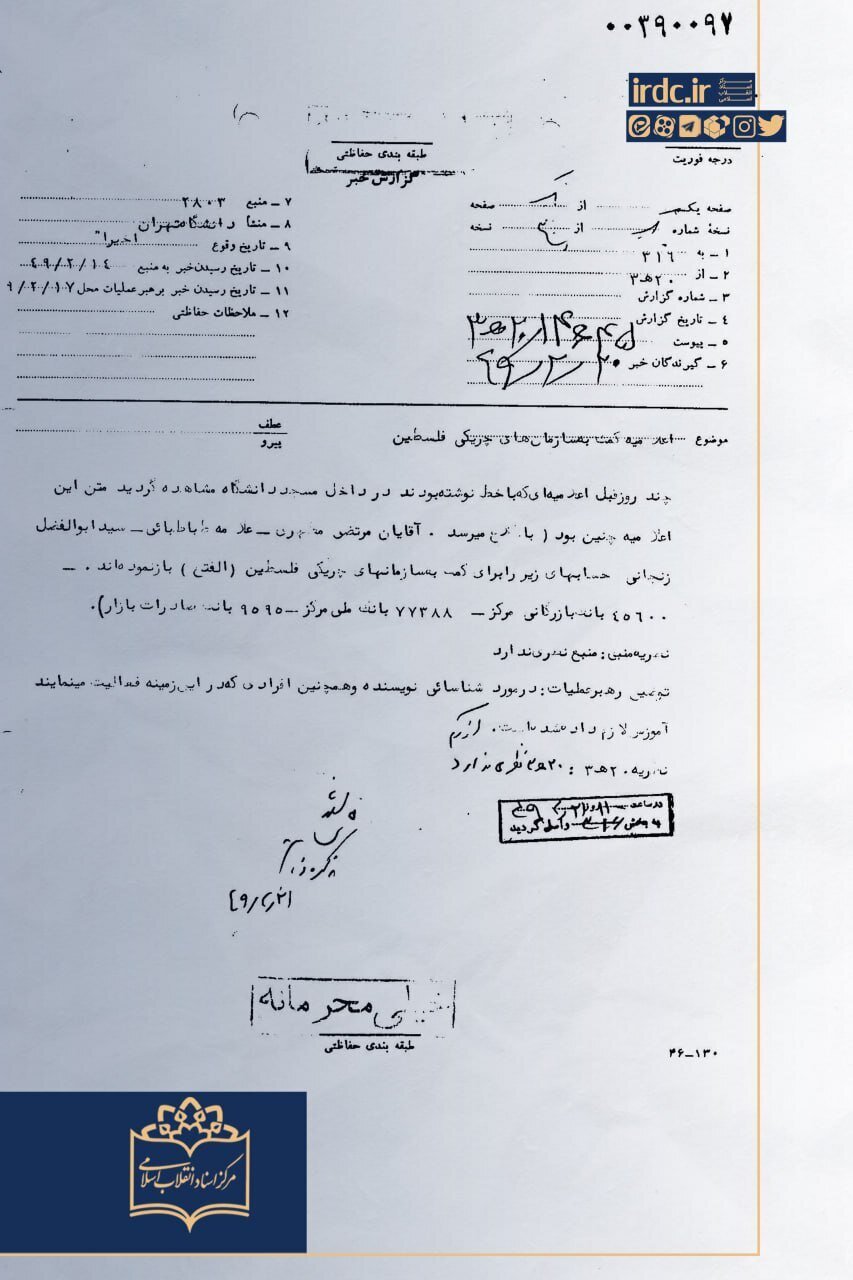 ۰۰۳۹۰۰۹۷
irdc.ir
مرکز اسناد انقلاب اسلامی
درجه فوریت
طبقه بندی حفاظتی
گزارش خبر
صفحه یکم از صفحه
نسخهٔ شماره از نسخه
۱ ـ به ۳۱۶
۲ ـ از ۲۰هـ۳
۳ ـ شماره گزارش
۴ ـ تاریخ گزارش
۵ ـ پیوست
۶ ـ گیرندگان خبر
۷ ـ منبع ۲۸۰۳
۸ ـ منشأ دانشگاه تهران
۹ ـ تاریخ وقوع اخیراً
۱۰ ـ تاریخ رسیدن خبر به منبع ۴۹/۲/۱۴
۱۱ ـ تاریخ رسیدن خبر برهبر عملیات محل ۹/۲/۱۷
۱۲ ـ ملاحظات حفاظتی
عطف
پیرو
موضوع اعلامیه کمک به سازمان‌های چریکی فلسطین
چند روز قبل اعلامیه‌ای که با خط نوشته بودند در داخل مسجد دانشگاه مشاهده گردید متن این
اعلامیه چنین بود ( با میرسد . آقایان مرتضی مطهری ـ علامه طباطبائی ـ سید ابوالفضل
زنجانی حسابهای زیر را برای کمک به سازمانهای چریکی فلسطین (الفتح) باز نموده‌اند . ـ
۴۵۶۰۰ بانک بازرگانی مرکز ـ ۷۷۳۸۸ بانک ملی مرکز ـ ۹۵۹۵ بانک صادرات بازار).
نظریه منبع : منبع نظری ندارد
رهبر عملیات : در مورد شناسائی نویسنده و همچنین افرادی که در این زمینه فعالیت مینمایند
آموزش لازم داده شده است .
نظریه ۲۰هـ۳ : ۲۰هـ۳ نظری ندارد
در ساعت
به بخش ۳۱۶ واصل گردید
خیلی محرمانه
طبقه بندی حفاظتی
۴۶-۱۳۰
مرکز اسناد انقلاب اسلامی